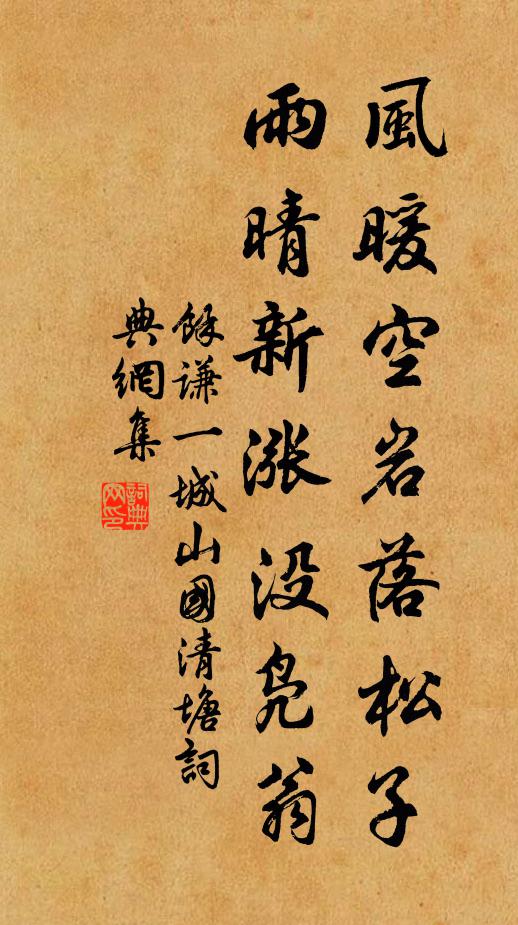 風暖空岩落松子
雨晴新漲没鳧翁
餘謙一城山國清塘詞
典網集
詞典